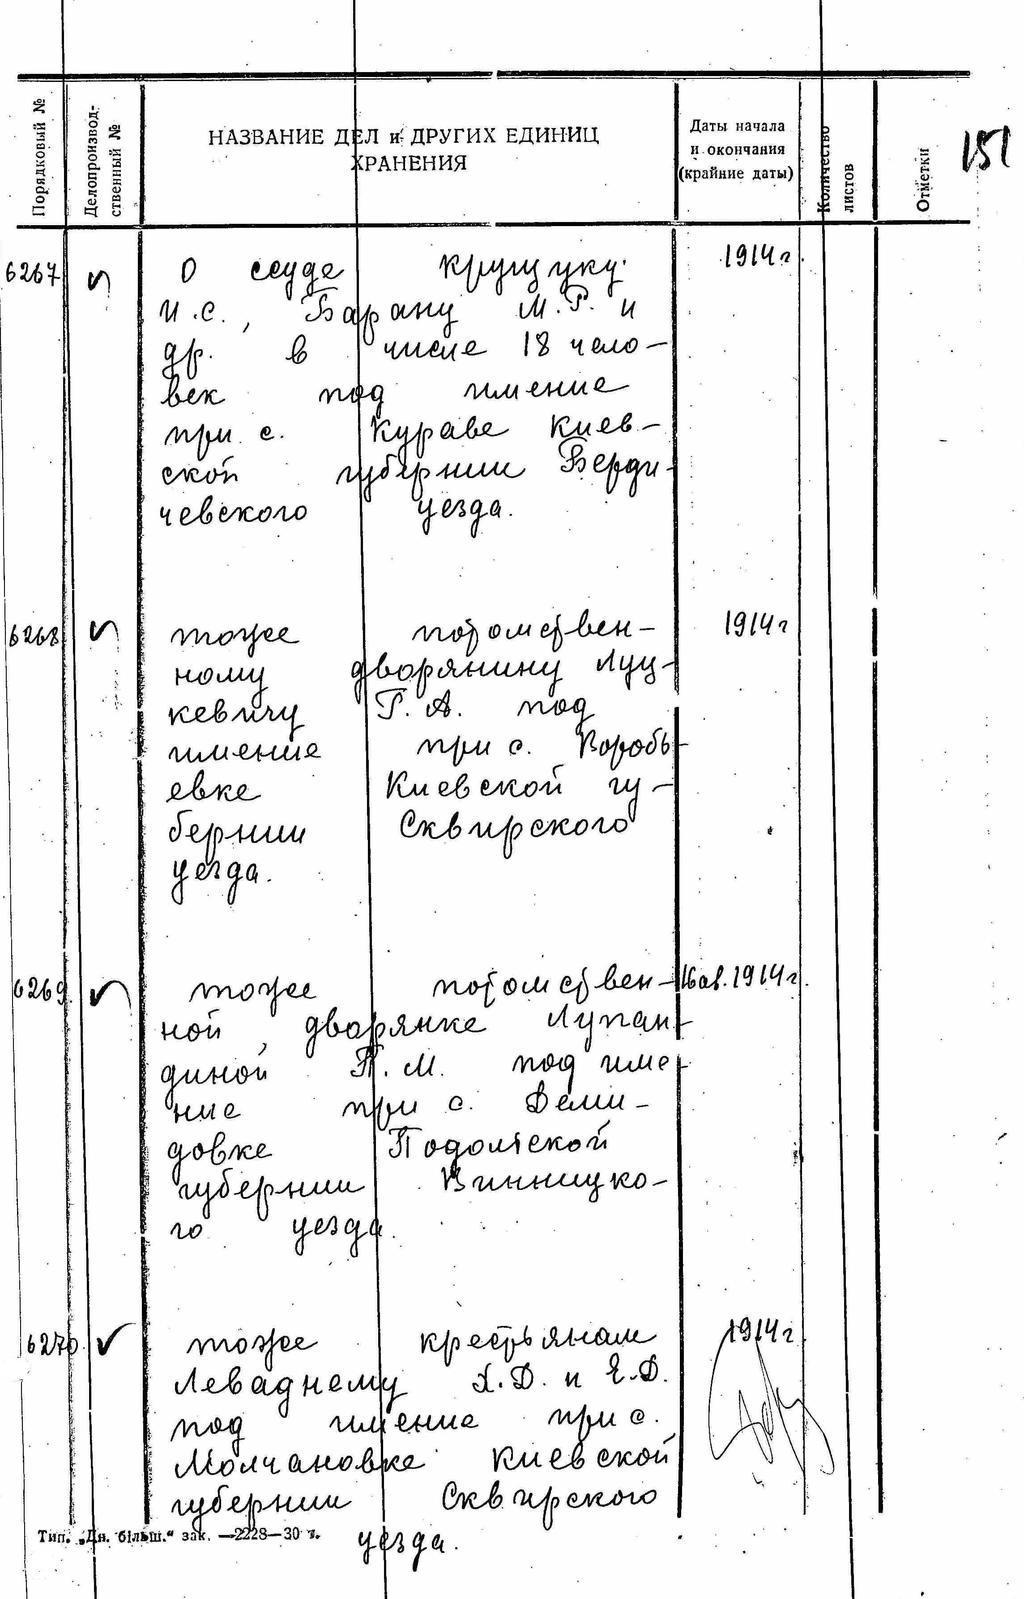 151
Порядковый №
Делопроизвод-
ственный №
НАЗВАНИЕ ДЕЛ и ДРУГИХ ЕДИНИЦ
ХРАНЕНИЯ
Даты начала
и окончания
(крайние даты)
Количество
листов
Отметки
6267 О ссуде 1914 г.
И.С., Барану М.Р. и
др. в числе 18 чело-
век под имение
при с. Кураве Киев-
ской губернии Берди-
чевского уезда.
6268 тоже потомствен- 1914 г
ному дворянину Луц-
кевичу Г.А. под
имение при с. Воробь-
евке Киевской гу-
бернии Сквирского
уезда.
6269 тоже потомствен- 16 ав. 1914 г.
ной дворянке Лупан-
диной П.М. под име-
ние при с. Деми-
довке Подольской
губернии Винницко-
го уезда.
6270 тоже крестьянам 1914 г
Леваднему Х.Д. и Е.Д.
под имение при с.
Молчановке Киевской
губернии Сквирского
уезда.
Тип. „Дн. більш." зак. —2228—30 т.